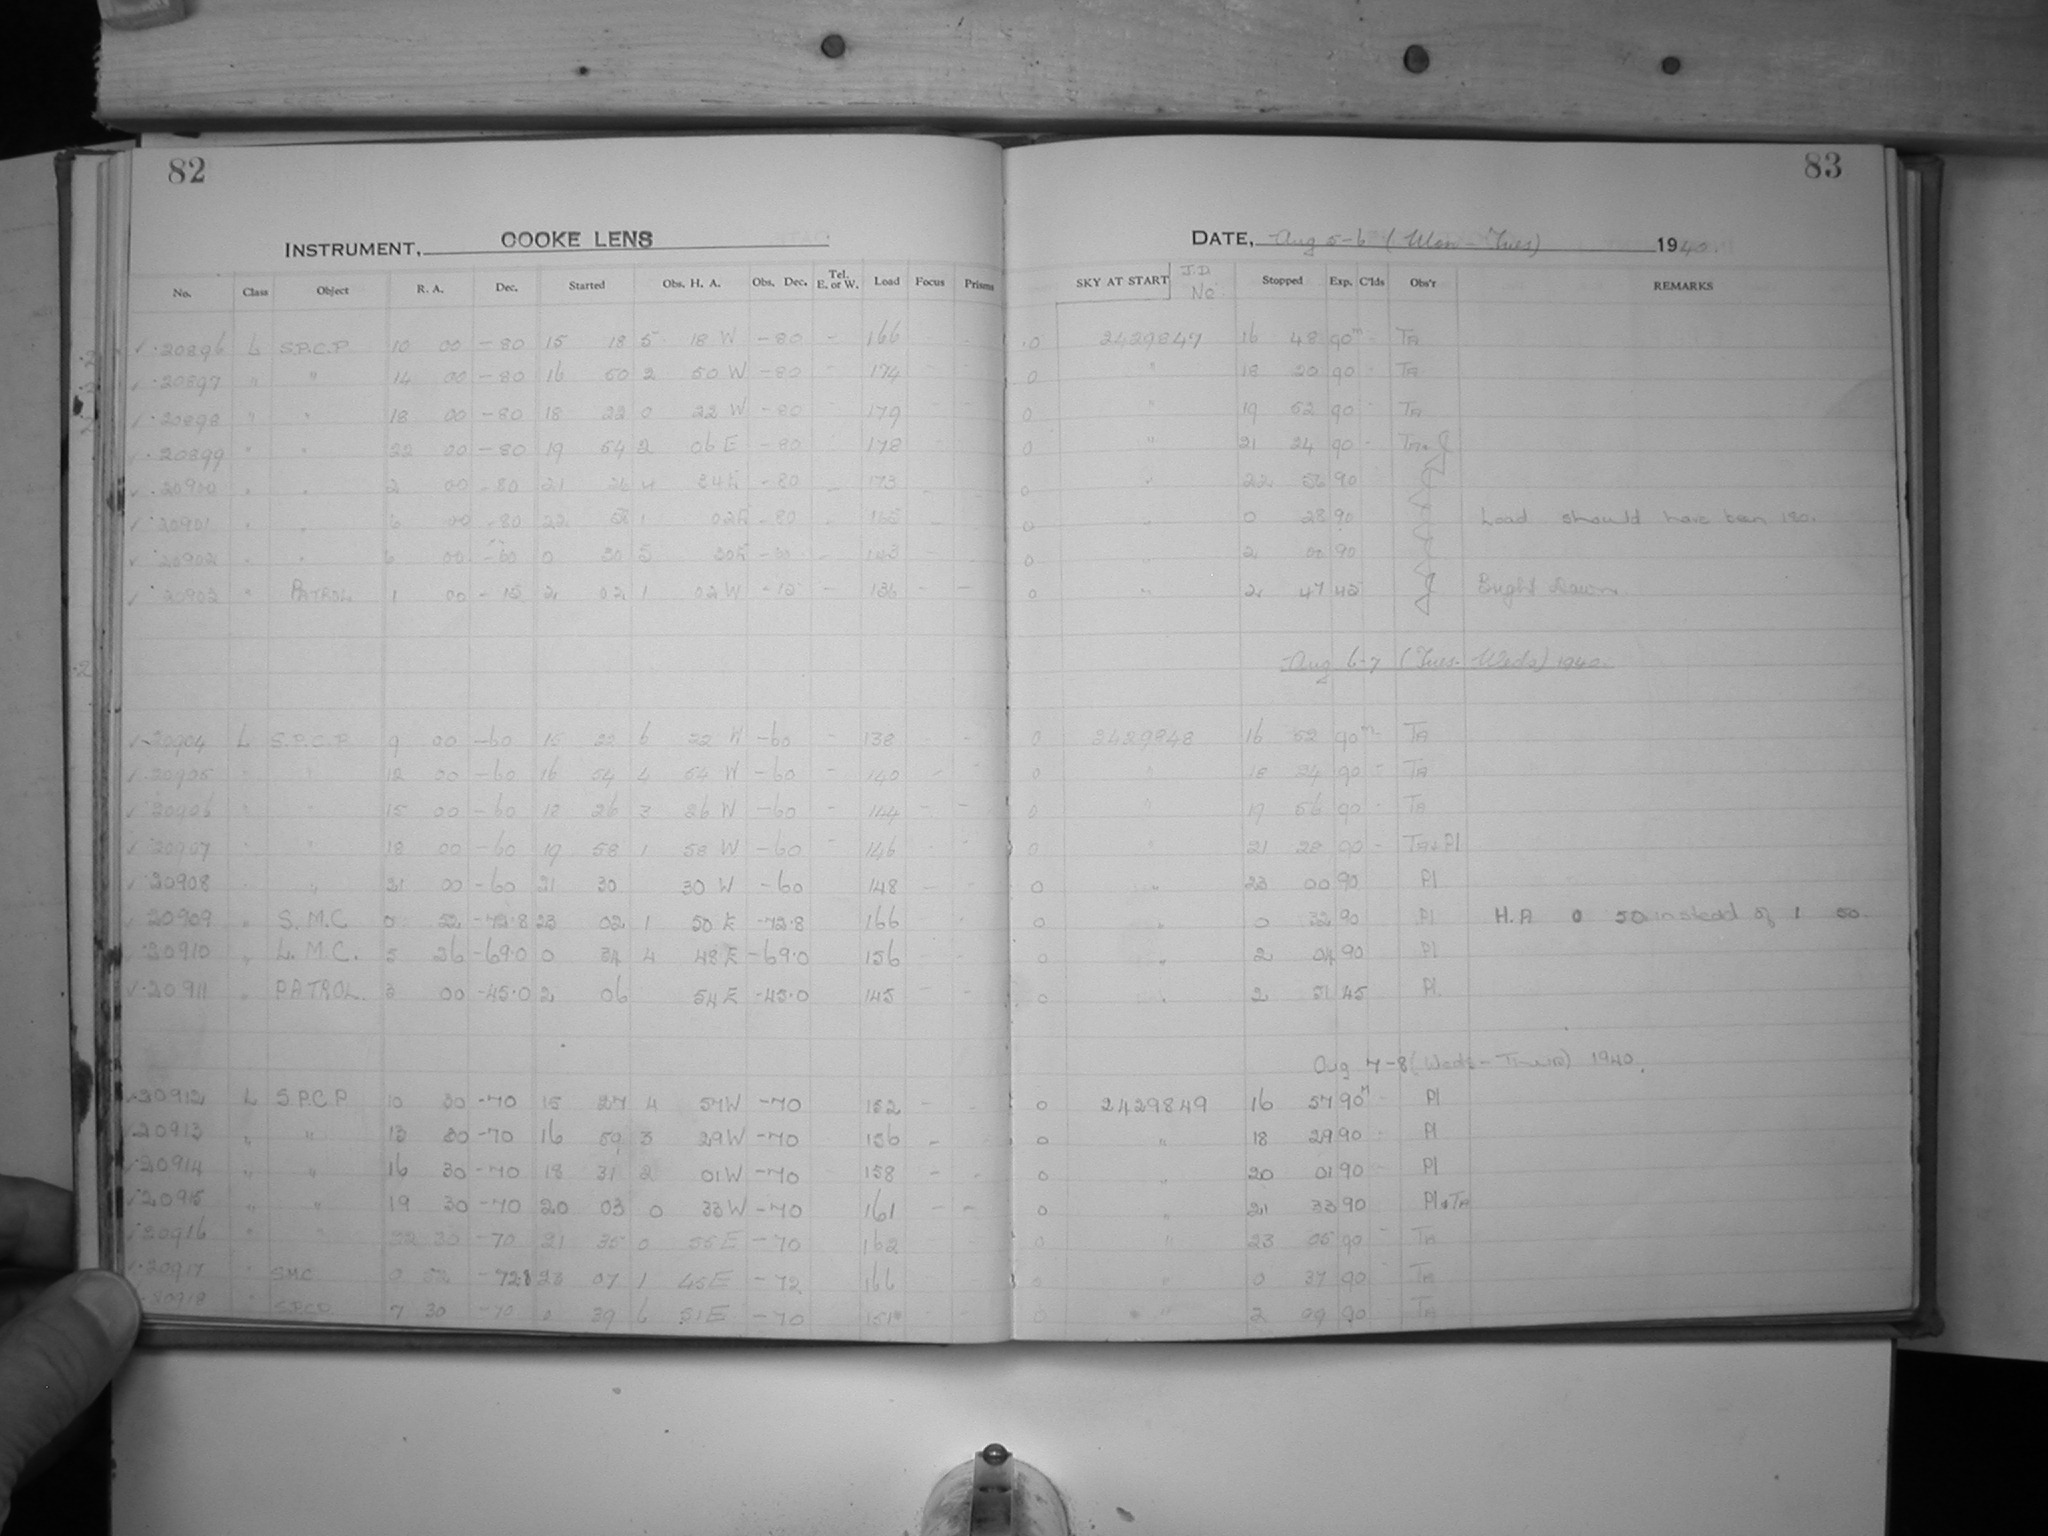 82
83
INSTRUMENT, COOKE LENS
DATE, Aug 5-6 (Mon - Tues) 1940.
No. Class Object R. A. Dec. Started Obs. H. A. Obs. Dec. Tel. E. or W. Load Focus Prisms SKY AT START J.D. No. Stopped Exp. C'lds Obs'r REMARKS
✓ 20896 L S.P.C.P. 10 00 -80 15 18 5 18 W -80 - 166 - - 0 2429847 16 48 90m - TA
✓ 20897 " " 14 00 -80 16 50 2 50 W -80 - 174 - - 0 " 18 20 90 - TA
✓ 20898 " " 18 00 -80 18 22 0 22 W -80 - 179 - - 0 " 19 52 90 - TA
✓ 20899 " " 22 00 -80 19 54 2 06 E -80 - 178 - - 0 " 21 24 90 - TA
✓ 20900 " " 2 00 -80 21 26 4 34 E -80 - 173 - - 0 " 22 56 90
✓ 20901 " " 6 00 -80 22 58 1 02 E -80 - 165 - - 0 " 0 28 90 Load should have been 180.
✓ 20902 " " 6 00 -60 0 30 5 30 E - 143 - - 0 " 2 00 90
✓ 20903 " PATROL 1 00 -15 2 02 1 02 W -15 - 136 - - 0 " 2 47 45 Bright Dawn.
Aug 6-7 (Tues - Weds) 1940.
✓ 20904 L S.P.C.P. 9 00 -60 15 22 6 22 W -60 - 138 - - 0 2429848 16 52 90m - TA
✓ 20905 " " 12 00 -60 16 54 4 54 W -60 - 140 - - 0 " 18 24 90 - TA
✓ 20906 " " 15 00 -60 18 26 3 26 W -60 - 144 - - 0 " 19 56 90 - TA
✓ 20907 " " 18 00 -60 19 58 1 58 W -60 - 146 - - 0 " 21 28 90 - TA & Pl
✓ 20908 " " 21 00 -60 21 30 30 W -60 148 - - 0 " 23 00 90 Pl
✓ 20909 " S.M.C 0 52 -72.8 23 02 1 50 E -72.8 166 - - 0 " 0 32 90 Pl H.A 0 50 instead of 1 50
✓ 20910 " L.M.C. 5 26 -69.0 0 34 4 48 E -69.0 156 - - 0 " 2 04 90 Pl
✓ 20911 " PATROL. 3 00 -45.0 2 06 54 E -45.0 145 - - 0 " 2 51 45 Pl.
Aug 7-8 (Weds - Thurs) 1940.
✓ 20912 L S.P.C.P. 10 30 -70 15 27 4 57 W -70 152 - - 0 2429849 16 57 90m - Pl
✓ 20913 " " 13 30 -70 16 59 3 29 W -70 156 - 0 " 18 29 90 - Pl
✓ 20914 " " 16 30 -70 18 31 2 01 W -70 158 - - 0 " 20 01 90 - Pl
✓ 20915 " " 19 30 -70 20 03 0 33 W -70 161 - - 0 " 21 33 90 Pl & TA
✓ 20916 " " 22 30 -70 21 35 0 55 E -70 162 0 " 23 05 90 - TA
✓ 20917 " SMC 0 52 -72.8 23 07 1 45 E -72 166 0 " 0 37 90 TA
20918 " S.P.C.P. 7 30 -70 0 39 6 51 E -70 151 - - 0 " 2 09 90 TA